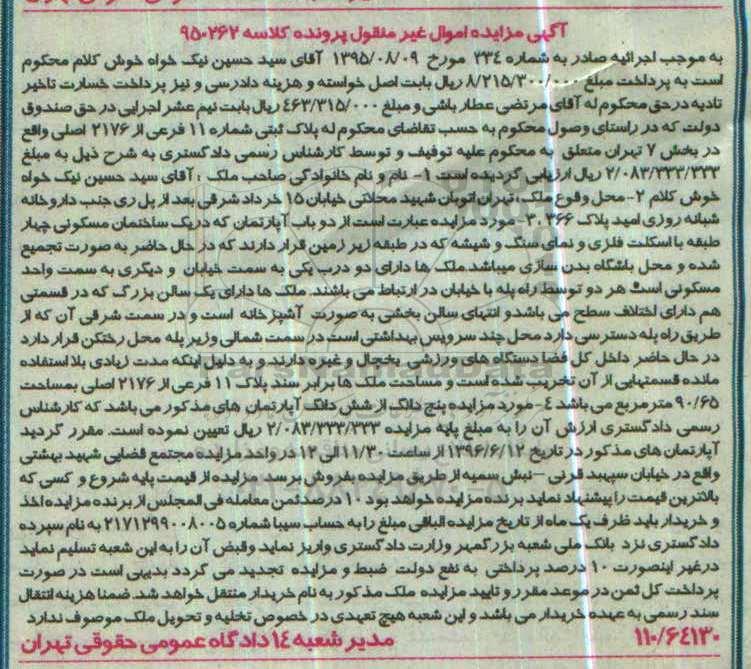 آگهی مزایده اموال غیر منقول پرونده کلاسه ۹۵۰۲۶۲
به موجب اجرائیه صادر به شماره ۲۳۴ مورخ ۱۳۹۵/۰۸/۰۹ آقای سید حسین نیک خواه خوش کلام محکوم
است به پرداخت مبلغ ۸/۲۱۵/۳۰۰/۰۰۰ ریال بابت اصل خواسته و هزینه دادرسی و نیز پرداخت خسارت تاخیر
تادیه در حق محکوم له آقای مرتضی عطار باشی و مبلغ ۴۶۳/۳۱۵/۰۰۰ ریال بابت نیم عشر اجرایی در حق صندوق
دولت که در راستای وصول محکوم به حسب تقاضای محکوم له پلاک ثبتی شماره ۱۱ فرعی از ۲۱۷۶ اصلی واقع
در بخش ۷ تهران متعلق به محکوم علیه توقیف و توسط کارشناس رسمی دادگستری به شرح ذیل به مبلغ
۲/۰۸۳/۳۳۳/۳۳۳ ریال ارزیابی گردیده است ۱- نام و نام خانوادگی صاحب ملک : آقای سید حسین نیک خواه
خوش کلام ۲- محل وقوع ملک : تهران اتوبان شهید محلاتی خیابان ۱۵ خرداد شرقی بعد از پل ری جنب داروخانه
شبانه روزی امید پلاک ۳۶۶ ،۳- مورد مزایده عبارت است از دو باب آپارتمان که در یک ساختمان مسکونی چهار
طبقه با اسکلت فلزی و نمای سنگ و شیشه که در طبقه زیر زمین قرار دارند که در حال حاضر به صورت تجمیع
شده و محل باشگاه بدن سازی میباشد. ملک ها دارای دو درب یکی به سمت خیابان و دیگری به سمت واحد
مسکونی است هر دو توسط راه پله با خیابان در ارتباط می باشند. ملک ها دارای یک سالن بزرگ که در قسمتی
هم دارای اختلاف سطح می باشد و انتهای سالن بخشی به صورت آشپزخانه است و در سمت شرقی آن که از
طریق راه پله دسترسی دارد محل چند سرویس بهداشتی است در سمت شمالی و زیر پله محل رختکن قرار دارد
در حال حاضر داخل کل فضا دستگاه های ورزشی یخچال و غیره دارند و به دلیل اینکه مدت زیادی بلااستفاده
مانده قسمتهایی از آن تخریب شده است و مساحت ملک ها برابر سند پلاک ۱۱ فرعی از ۲۱۷۶ اصلی بمساحت
۹۰/۶۵ متر مربع می باشد ۴- مورد مزایده پنج دانگ از شش دانگ آپارتمان های مذکور می باشد که کارشناس
رسمی دادگستری ارزش آن را به مبلغ پایه مزایده ۲/۰۸۳/۳۳۳/۳۳۳ ریال تعیین نموده است. مقرر گردید
آپارتمان های مذکور در تاریخ ۱۳۹۶/۶/۱۲ از ساعت ۱۱/۳۰ الی ۱۲ در واحد مزایده مجتمع قضایی شهید بهشتی
واقع در خیابان سپهبد قرنی – نبش سمیه از طریق مزایده بفروش برسد. مزایده از قیمت پایه شروع و کسی که
بالاترین قیمت را پیشنهاد نماید برنده مزایده خواهد بود ۱۰ درصد ثمن معامله فی المجلس از برنده مزایده اخذ
و خریدار باید ظرف یک ماه از تاریخ مزایده الباقی مبلغ را به حساب سیبا شماره ۲۱۷۱۲۹۹۰۰۸۰۰۵ به نام سپرده
دادگستری نزد بانک ملی شعبه بزرگمهر وزارت دادگستری واریز نماید وقبض آن را به این شعبه تسلیم نماید
درغیر اینصورت ۱۰ درصد پرداختی به نفع دولت ضبط و مزایده تجدید می گردد بدیهی است در صورت
پرداخت کل ثمن در موعد مقرر و تایید مزایده ملک مذکور به نام خریدار منتقل خواهد شد. ضمنا هزینه انتقال
سند رسمی به عهده خریدار می باشد و این شعبه هیچ تعهدی در خصوص تخلیه و تحویل ملک موصوف ندارد
۱۱۰/۶۴۱۳۰ مدیر شعبه ۱۴ دادگاه عمومی حقوقی تهران
ParsNamadData